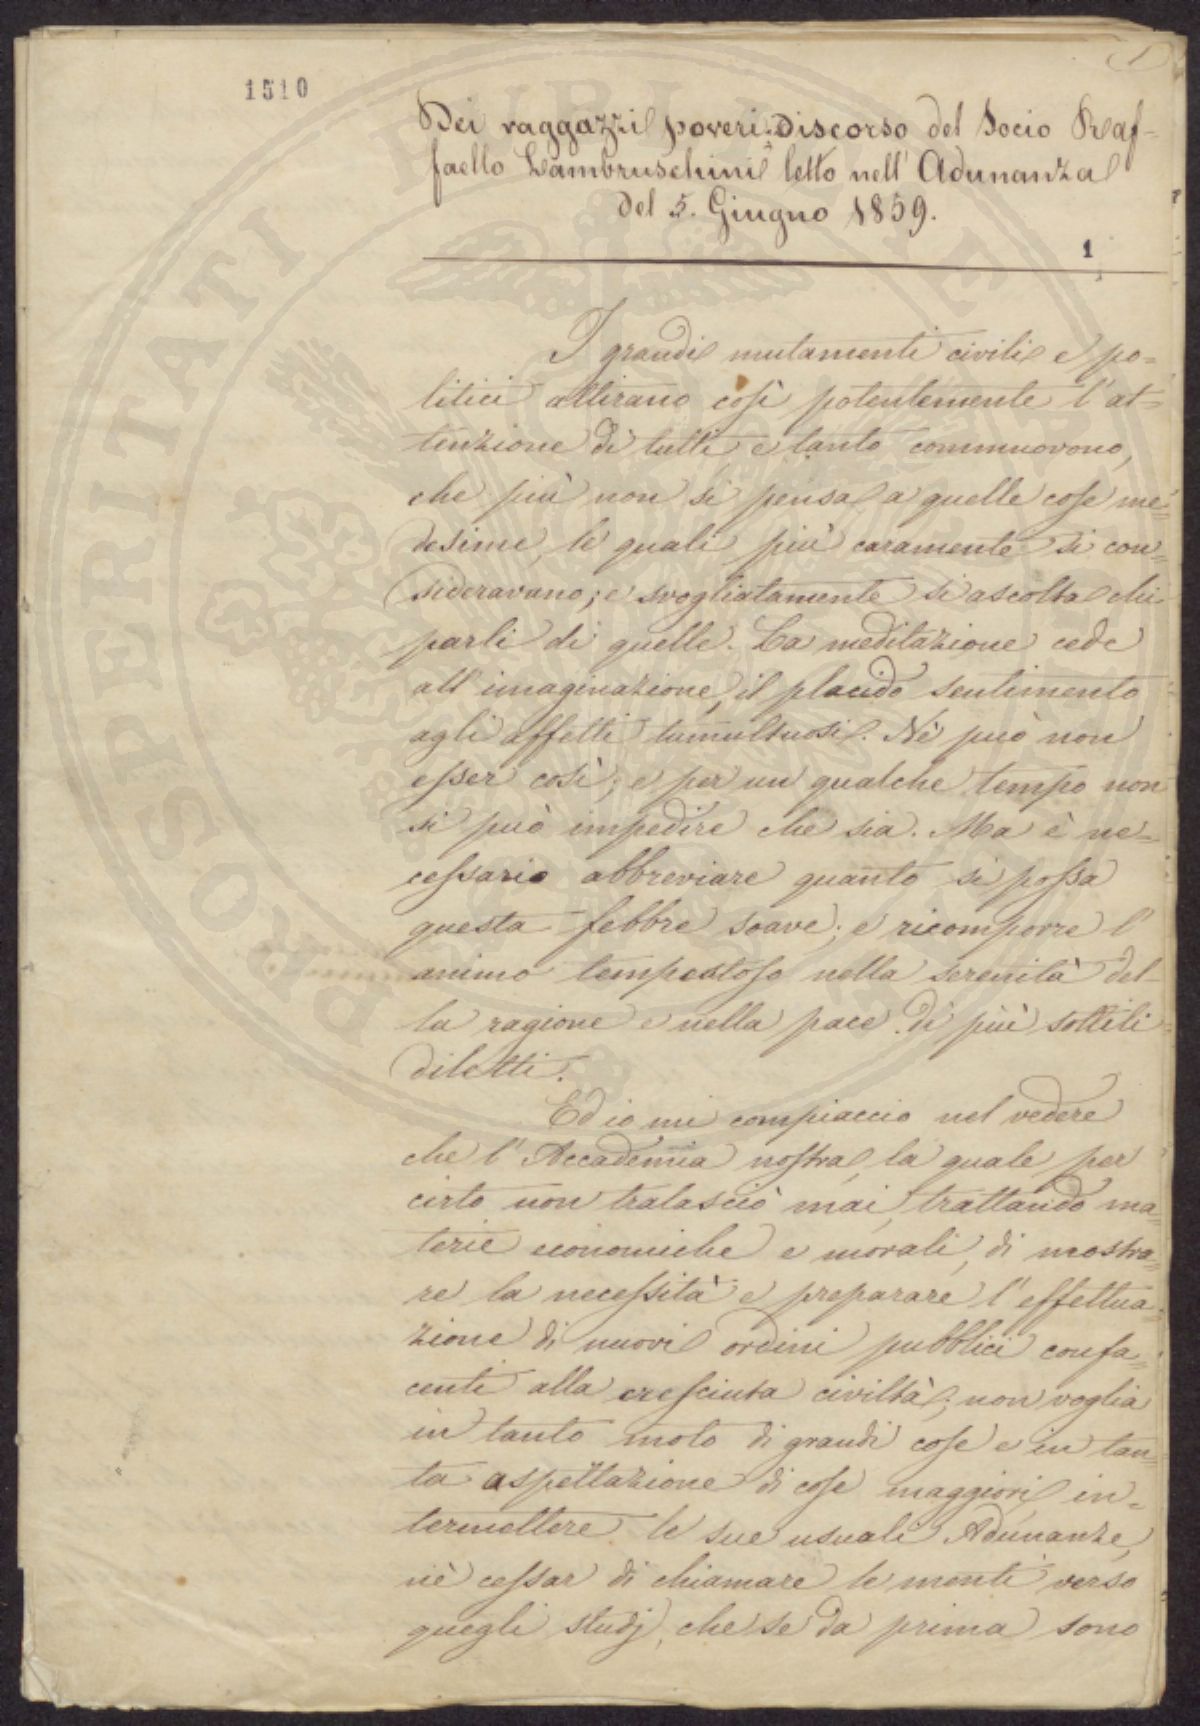 1
1510
Dei ragazzi poveri. Discorso del Socio Raf-
faello Lambruschini letto nell'Adunanza
del 5. Giugno 1859.
1
I grandi mutamenti civili e po=
litici attirano così potentemente l'at=
tenzione di tutti, e tanto commuovono,
che più non si pensa a quelle cose me=
desime, le quali più caramente si con=
sideravano; e svogliatamente si ascolta chi
parli di quelle. La meditazione cede
all'imaginazione, il placido sentimento
agli affetti tumultuosi. Nè può non
esser così; e per un qualche tempo non
si può impedire che sia. Ma è ne=
cessario abbreviare quanto si possa
questa febbre soave; e ricomporre l'
animo tempestoso nella serenità del-
la ragione e nella pace di più sottili
diletti.
Ed io mi compiaccio nel vedere
che l'Accademia nostra, la quale per
certo non tralasciò mai, trattando ma=
terie economiche e morali, di mostra=
re la necessità e preparare l'effettua=
zione di nuovi ordini pubblici confa=
centi alla cresciuta civiltà; non voglia
in tanto moto di grandi cose e in tan=
ta aspettazione di cose maggiori, in=
termettere le sue usuali Adunanze,
nè cessar di chiamare le menti verso
quegli studj, che se da prima sono
PROSPERITATI